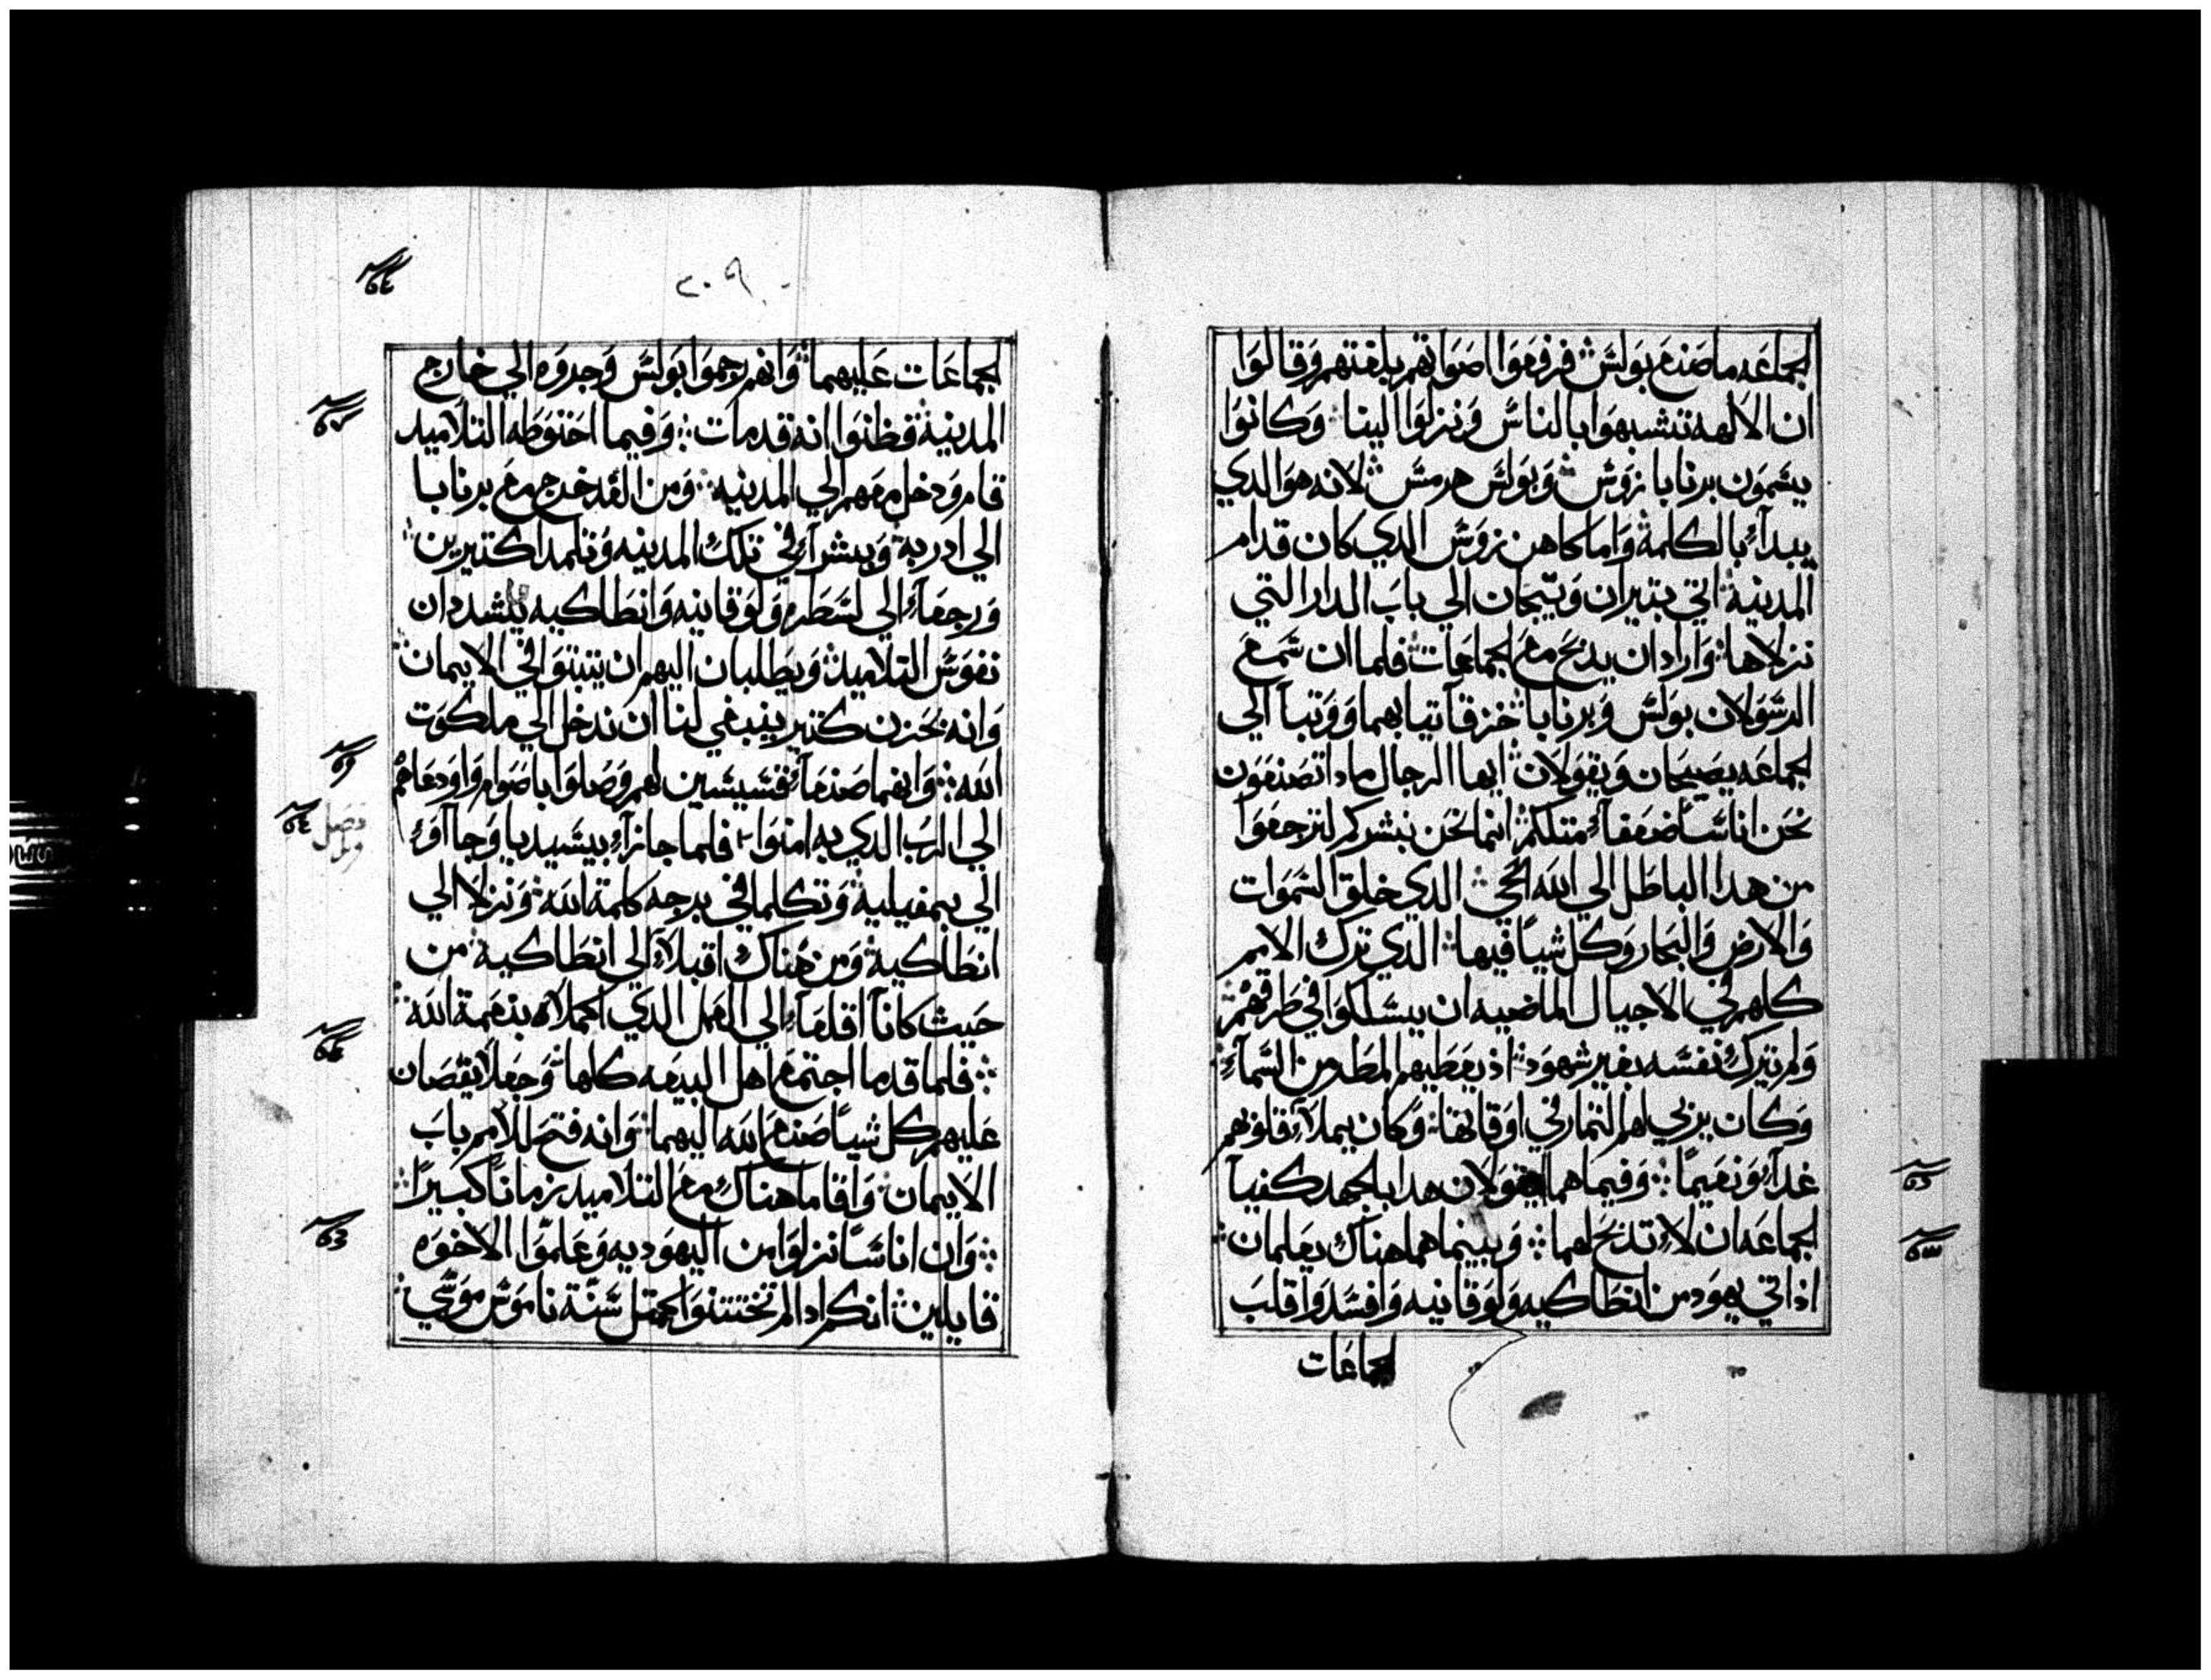 الجماعه ما صنع بولس فرفعوا اصواتهم بلغتهم وقالوا
ان الالهه تشبهوا بالناس ونزلوا الينا وكانوا
يسمون برنابا زوس وبولس هرمس لانه هو الدي
يبداء بالكلمة واما كاهن زوس الدي كان قدام
المدينة اتي بتيران وتيجان الي باب الدار التي
نزلاها وارادان يدبح مع الجماعات فلما ان سمع
الرسولان بولس وبرنابا خزقا تيابهما ووتبا الي
الجماعه يصيحان ويقولان ايها الرجال مادا تصنعون
نحن اناسا ضعفاء متلكم انما نحن نبشركم لترجعوا
من هدا الباطل الي الله الحي الدي خلق السموات
والارض والبحار وكل شيا فيها الدي ترك الامم
كلهم في الاجيال الماضيه ان يسلكوا في طرقهم
ولم يترك نفسه بغير شهود اد يعطيهم المطر من السماء
وكان يربي لهم التمار في اوقاتها وكان يملاء قلوبهم
غداء ونعيما وفيما هما يقولان هدا بالجهد كفيا
الجماعه ان لاء تدبح لهما وبينما هما هناك يعلمان
اداتي يهود من انطاكيه ولوقانيه وافسدوا قلب
الجماعات
٢٠٩
الجماعات عليهما وانهم رجموا بولس وجروه الي خارج
المدينة فظنوا انه قد مات وفيما احتوطه التلاميد
قام ودخل معهم الي المدينه ومن الغد خرج مع برنابا
الي ادربه وبشراء في تلك المدينه وتلمدا كتيرين
ورجعاء الي لسطره ولوقانيه وانطاكيه يشددان
نفوس التلاميد ويطلبان اليهم ان يتبتوا في الايمان
وانه بحزن كتير ينبغي لنا ان ندخل الي ملكوت
الله وانهما صنعاء قسيسين لهم وصلوا باصوام واودعاهم
الي الرب الدي به امنوا فلما جازاء بيسيديا وجااوء
الي بمفيلية وتكلما في برجه كلمة الله ونزلا الي
انطاكية ومن هناك اقبلاء الي انطاكيه من
حيث كانا اقلعاء الي العمل الدي اكملاه بنعمة الله
فلما قدما اجتمع اهل البيعه كلها وجعلا يقصان
عليهم كل شيا صنع الله اليهما وانه فتح للامم باب
الايمان واقاما هناك مع التلاميد زمانا كبيرا
وان اناسا نزلوا من اليهوديه وعلموا الاخوه
قايلين انكم ادا لم تختتنوا كمتل سنة ناموس موسي